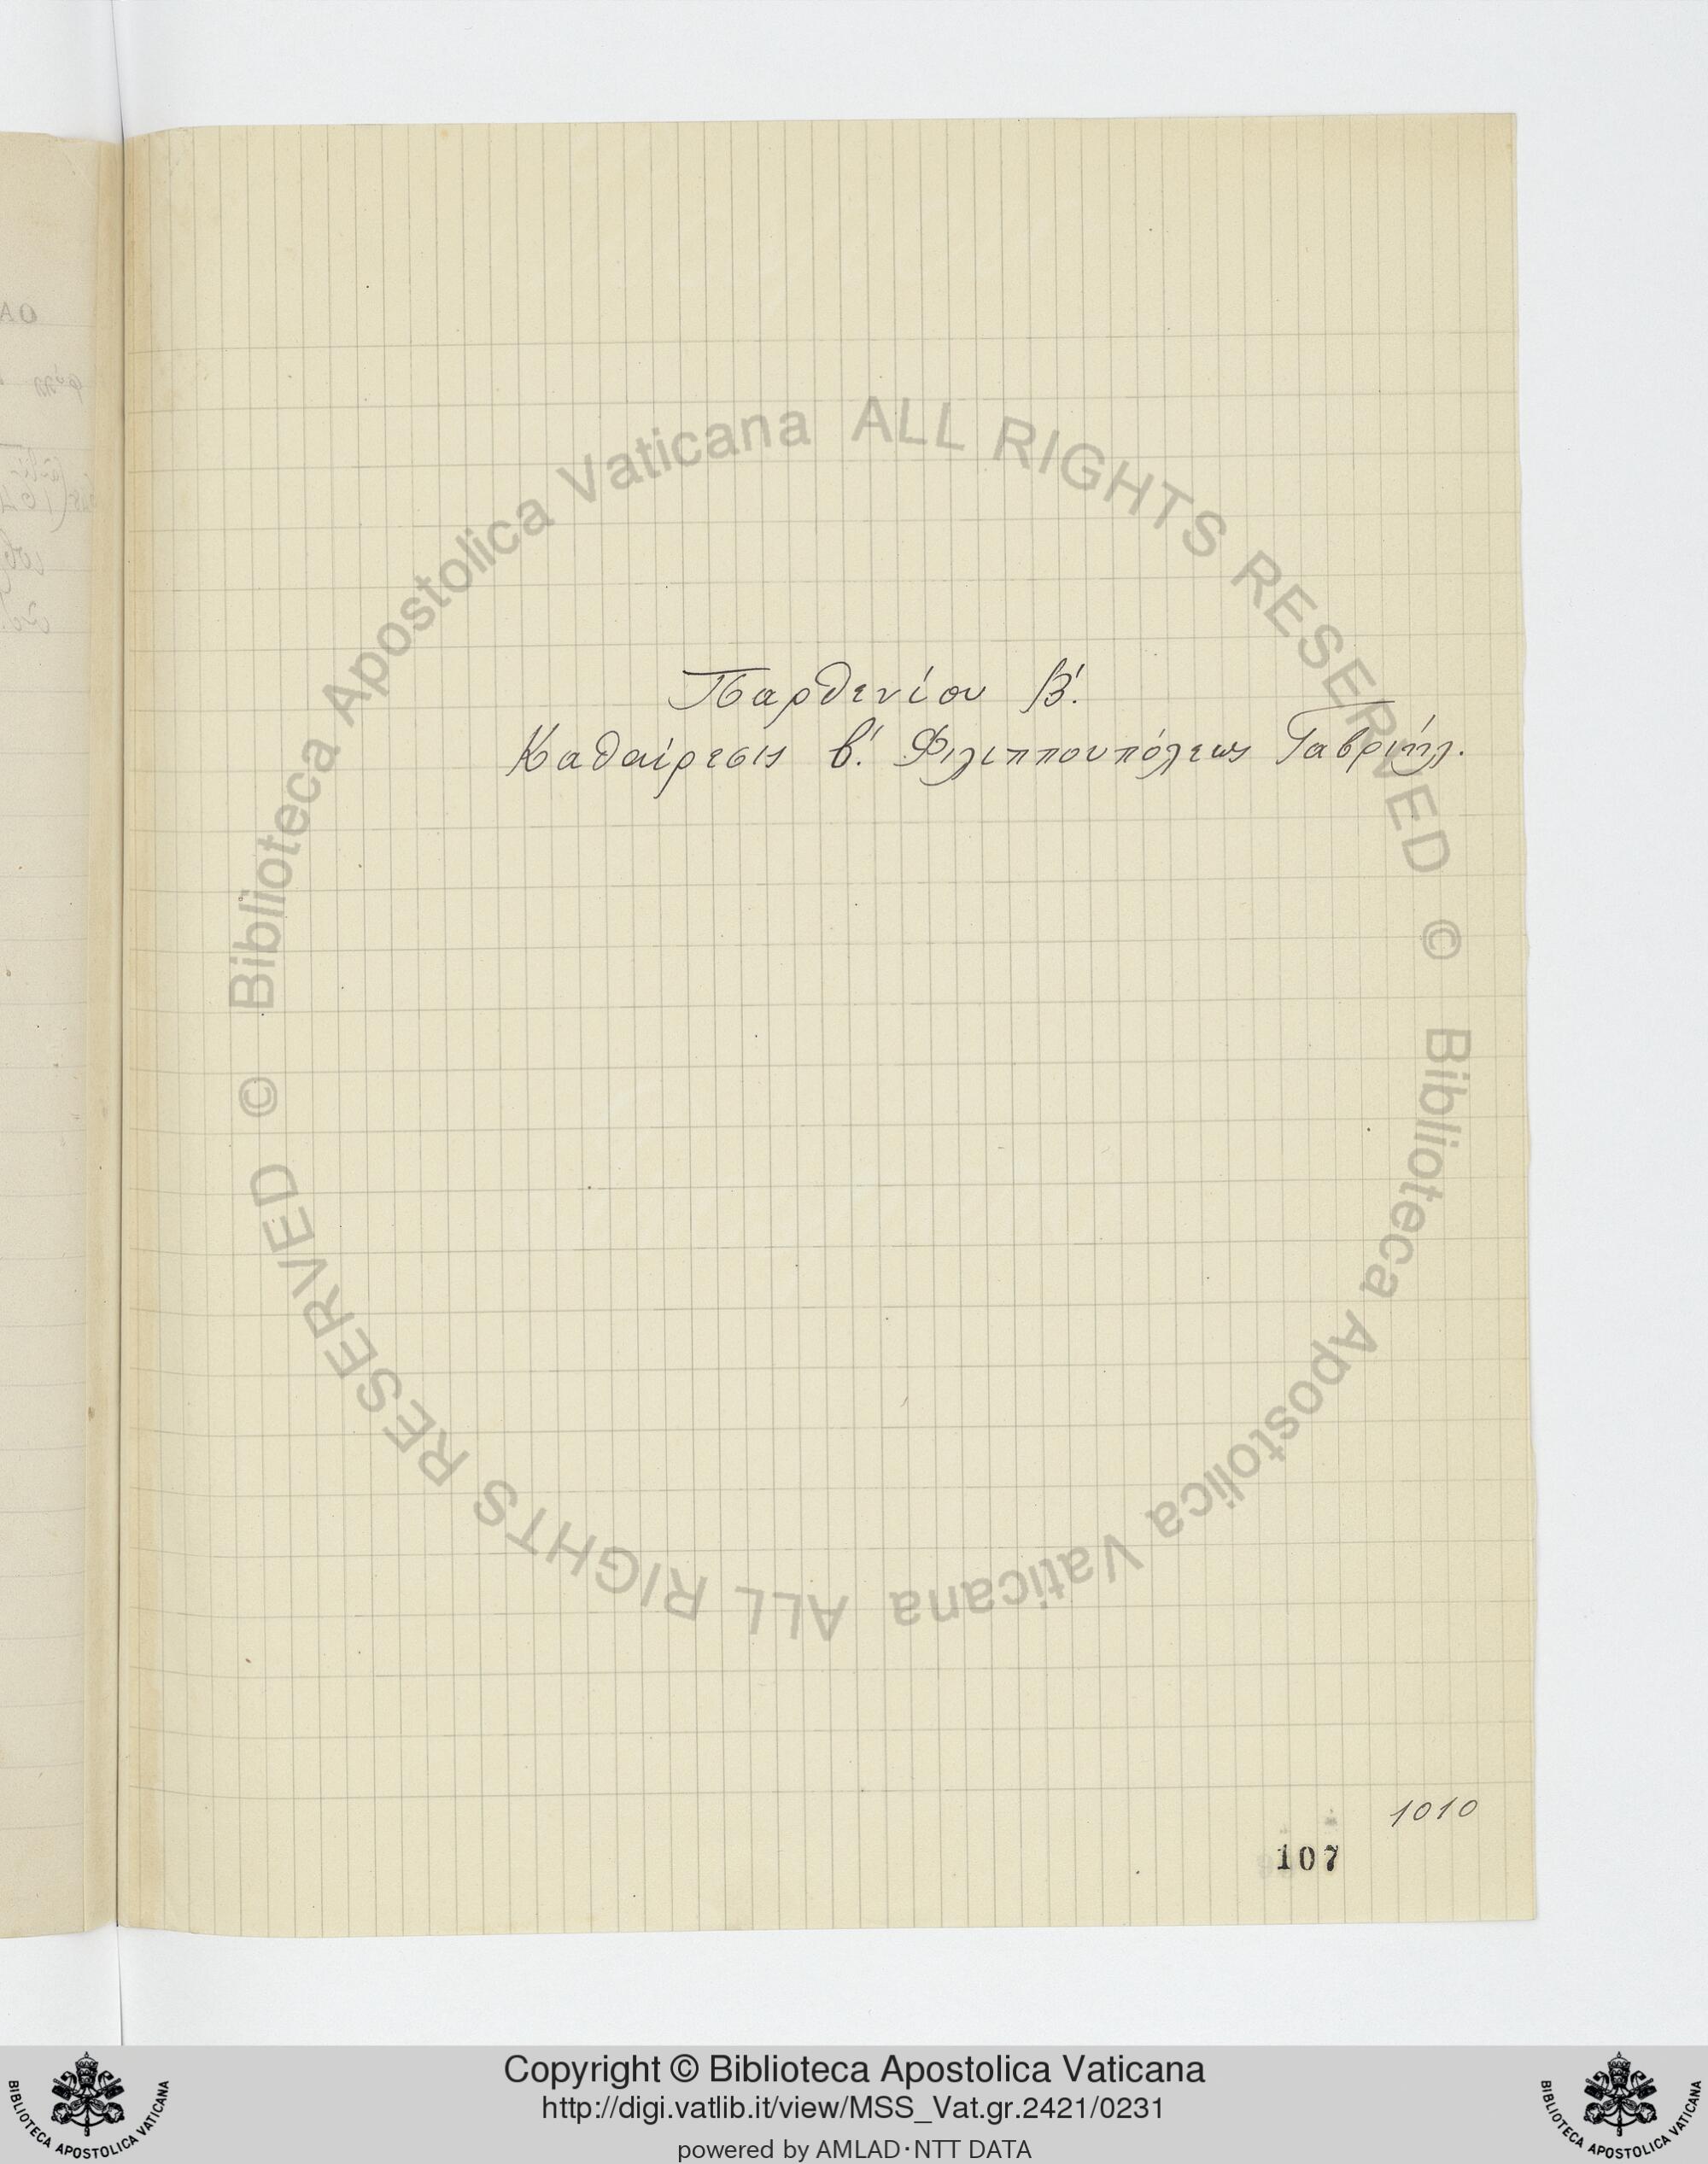 Παρθενίου Β'.
Καθαίρεσις β'. Φιλιππουπόλεως Γαβριήλ.
1010
107
© Biblioteca Apostolica Vaticana ALL RIGHTS RESERVED
© Biblioteca Apostolica Vaticana ALL RIGHTS RESERVED
Copyright © Biblioteca Apostolica Vaticana
http://digi.vatlib.it/view/MSS_Vat.gr.2421/0231
powered by AMLAD·NTT DATA
BIBLIOTECA APOSTOLICA VATICANA
BIBLIOTECA APOSTOLICA VATICANA